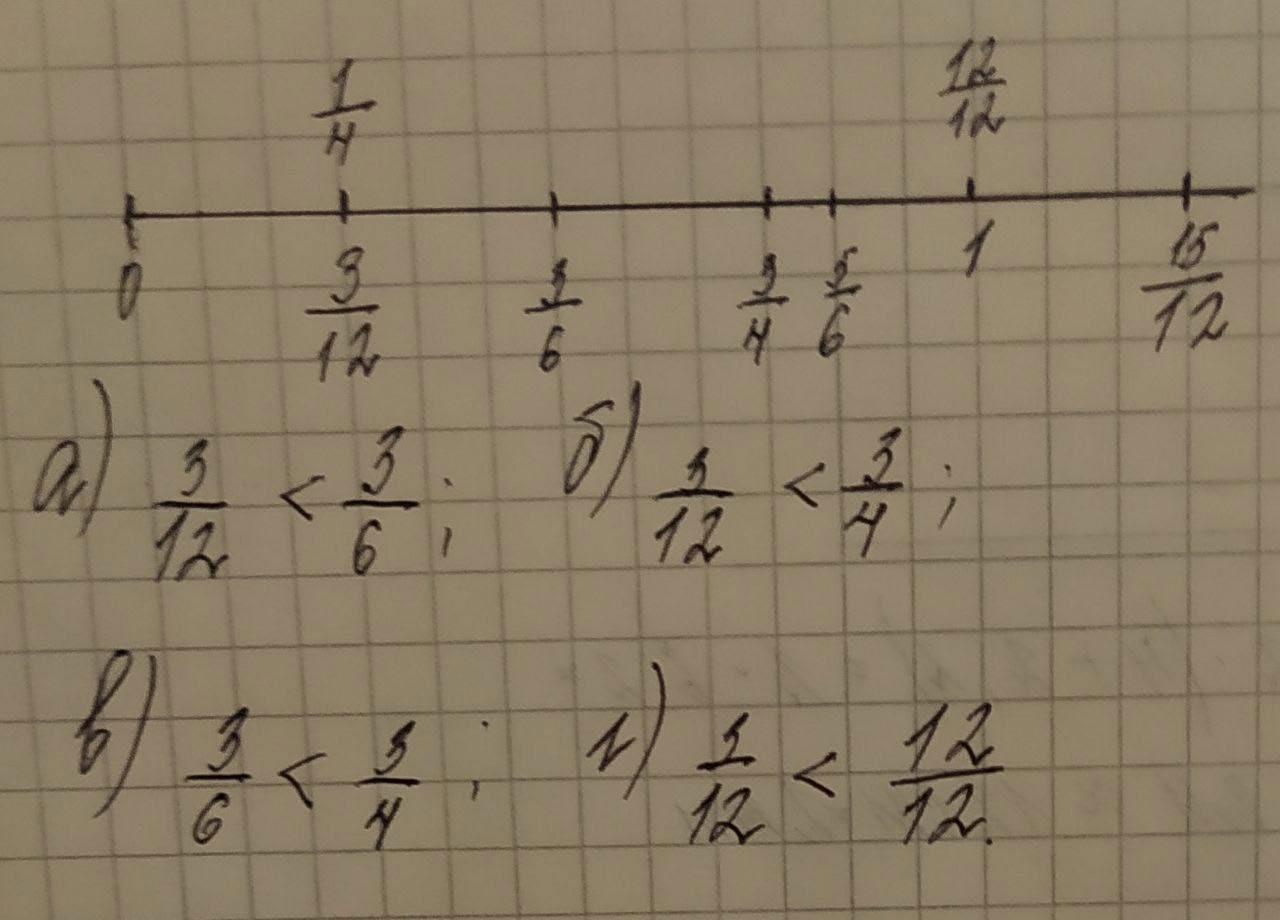 1/4 12/12
0 3/12 3/6 3/4 5/6 1 15/12
а) 3/12 < 3/6; б) 3/12 < 3/4;
в) 3/6 < 3/4; г) 3/12 < 12/12.